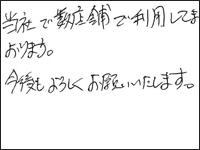 当社で数店舗で利用してま
おります。
今後もよろしくお願いいたします。